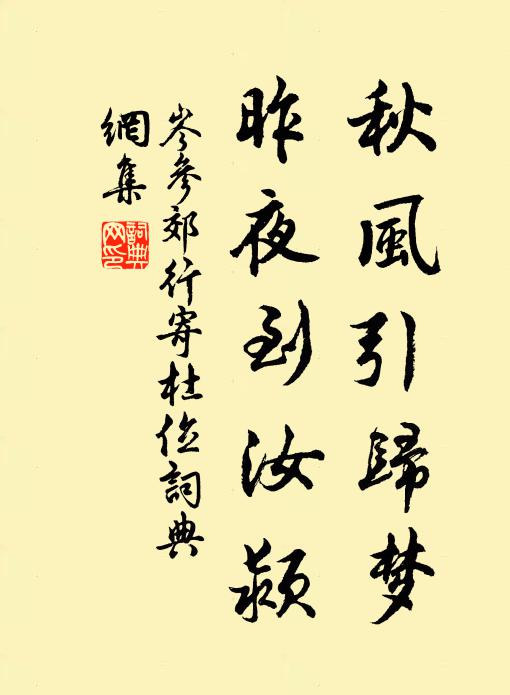 秋風引歸梦
昨夜到汝颍
岑參郊行寄杜位詞典
網集
詞典
网印